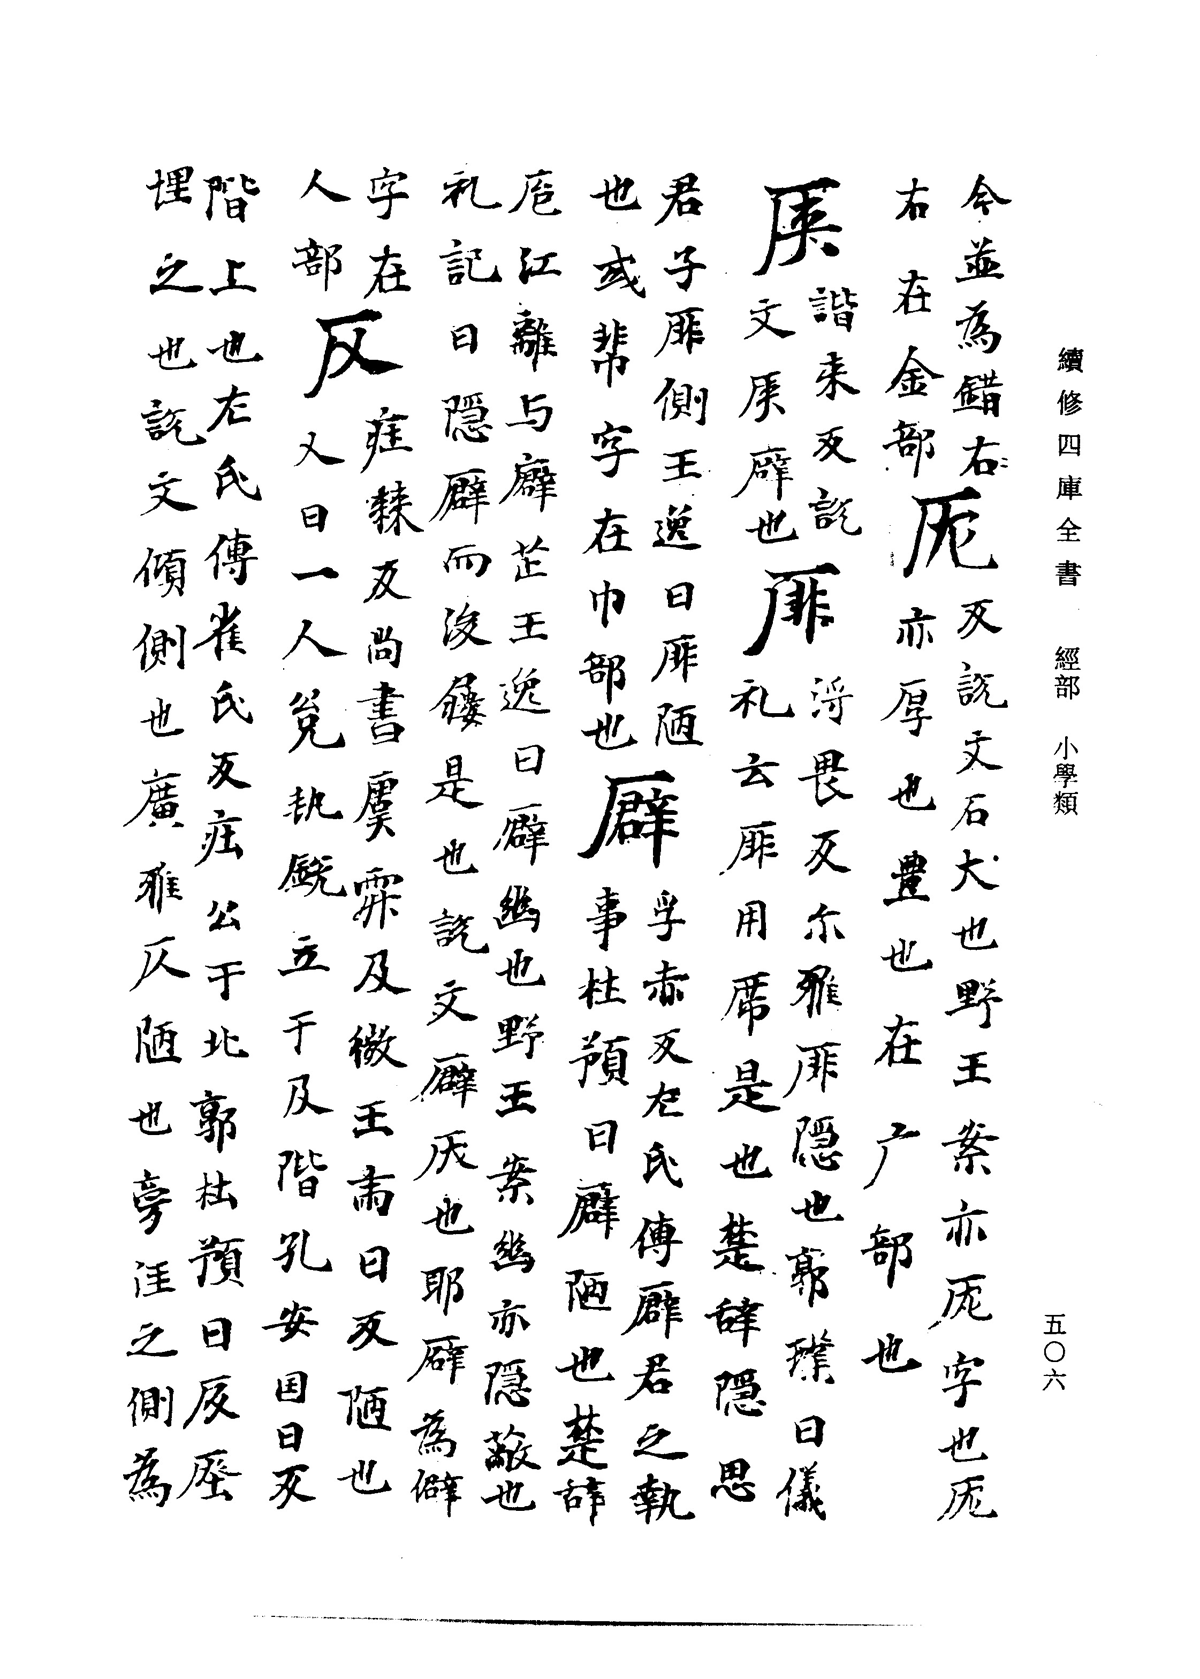 續修四庫全書 經部 小學類
五〇六
今並為錯右〻
右在金部
厖
反說文石大也野王案亦厖字也厖
亦厚也豊也在广部也
㕉
諧夾反說
文㕉㕢也
厞
浮畏反尒雅厞隱也郭璞曰儀
礼云厞用席是也楚辞隱思
君子厞側王逸曰厞陋
也或字在巾部也
㕢
孚赤反左氏傳㕢君之執
事杜預曰㕢陋也楚辞
扈江離与㕢芷王逸曰㕢幽也野王案幽亦隱蔽也
礼記曰隱㕢而後屨是也說文㕢仄也耶㕢為僻
字在
人部
仄
疰棘反尚書虞舜及微王肅曰仄陋也
又曰一人冕執銳立于及階孔安国曰仄
階上也左氏傳崔氏仄疰公于北郭杜預曰仄
埋之也說文傾側也廣雅仄陋也旁淫之側為